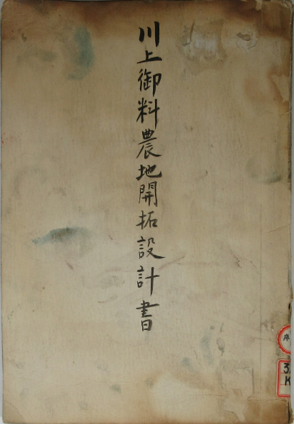 川上御料農地開拓設計書